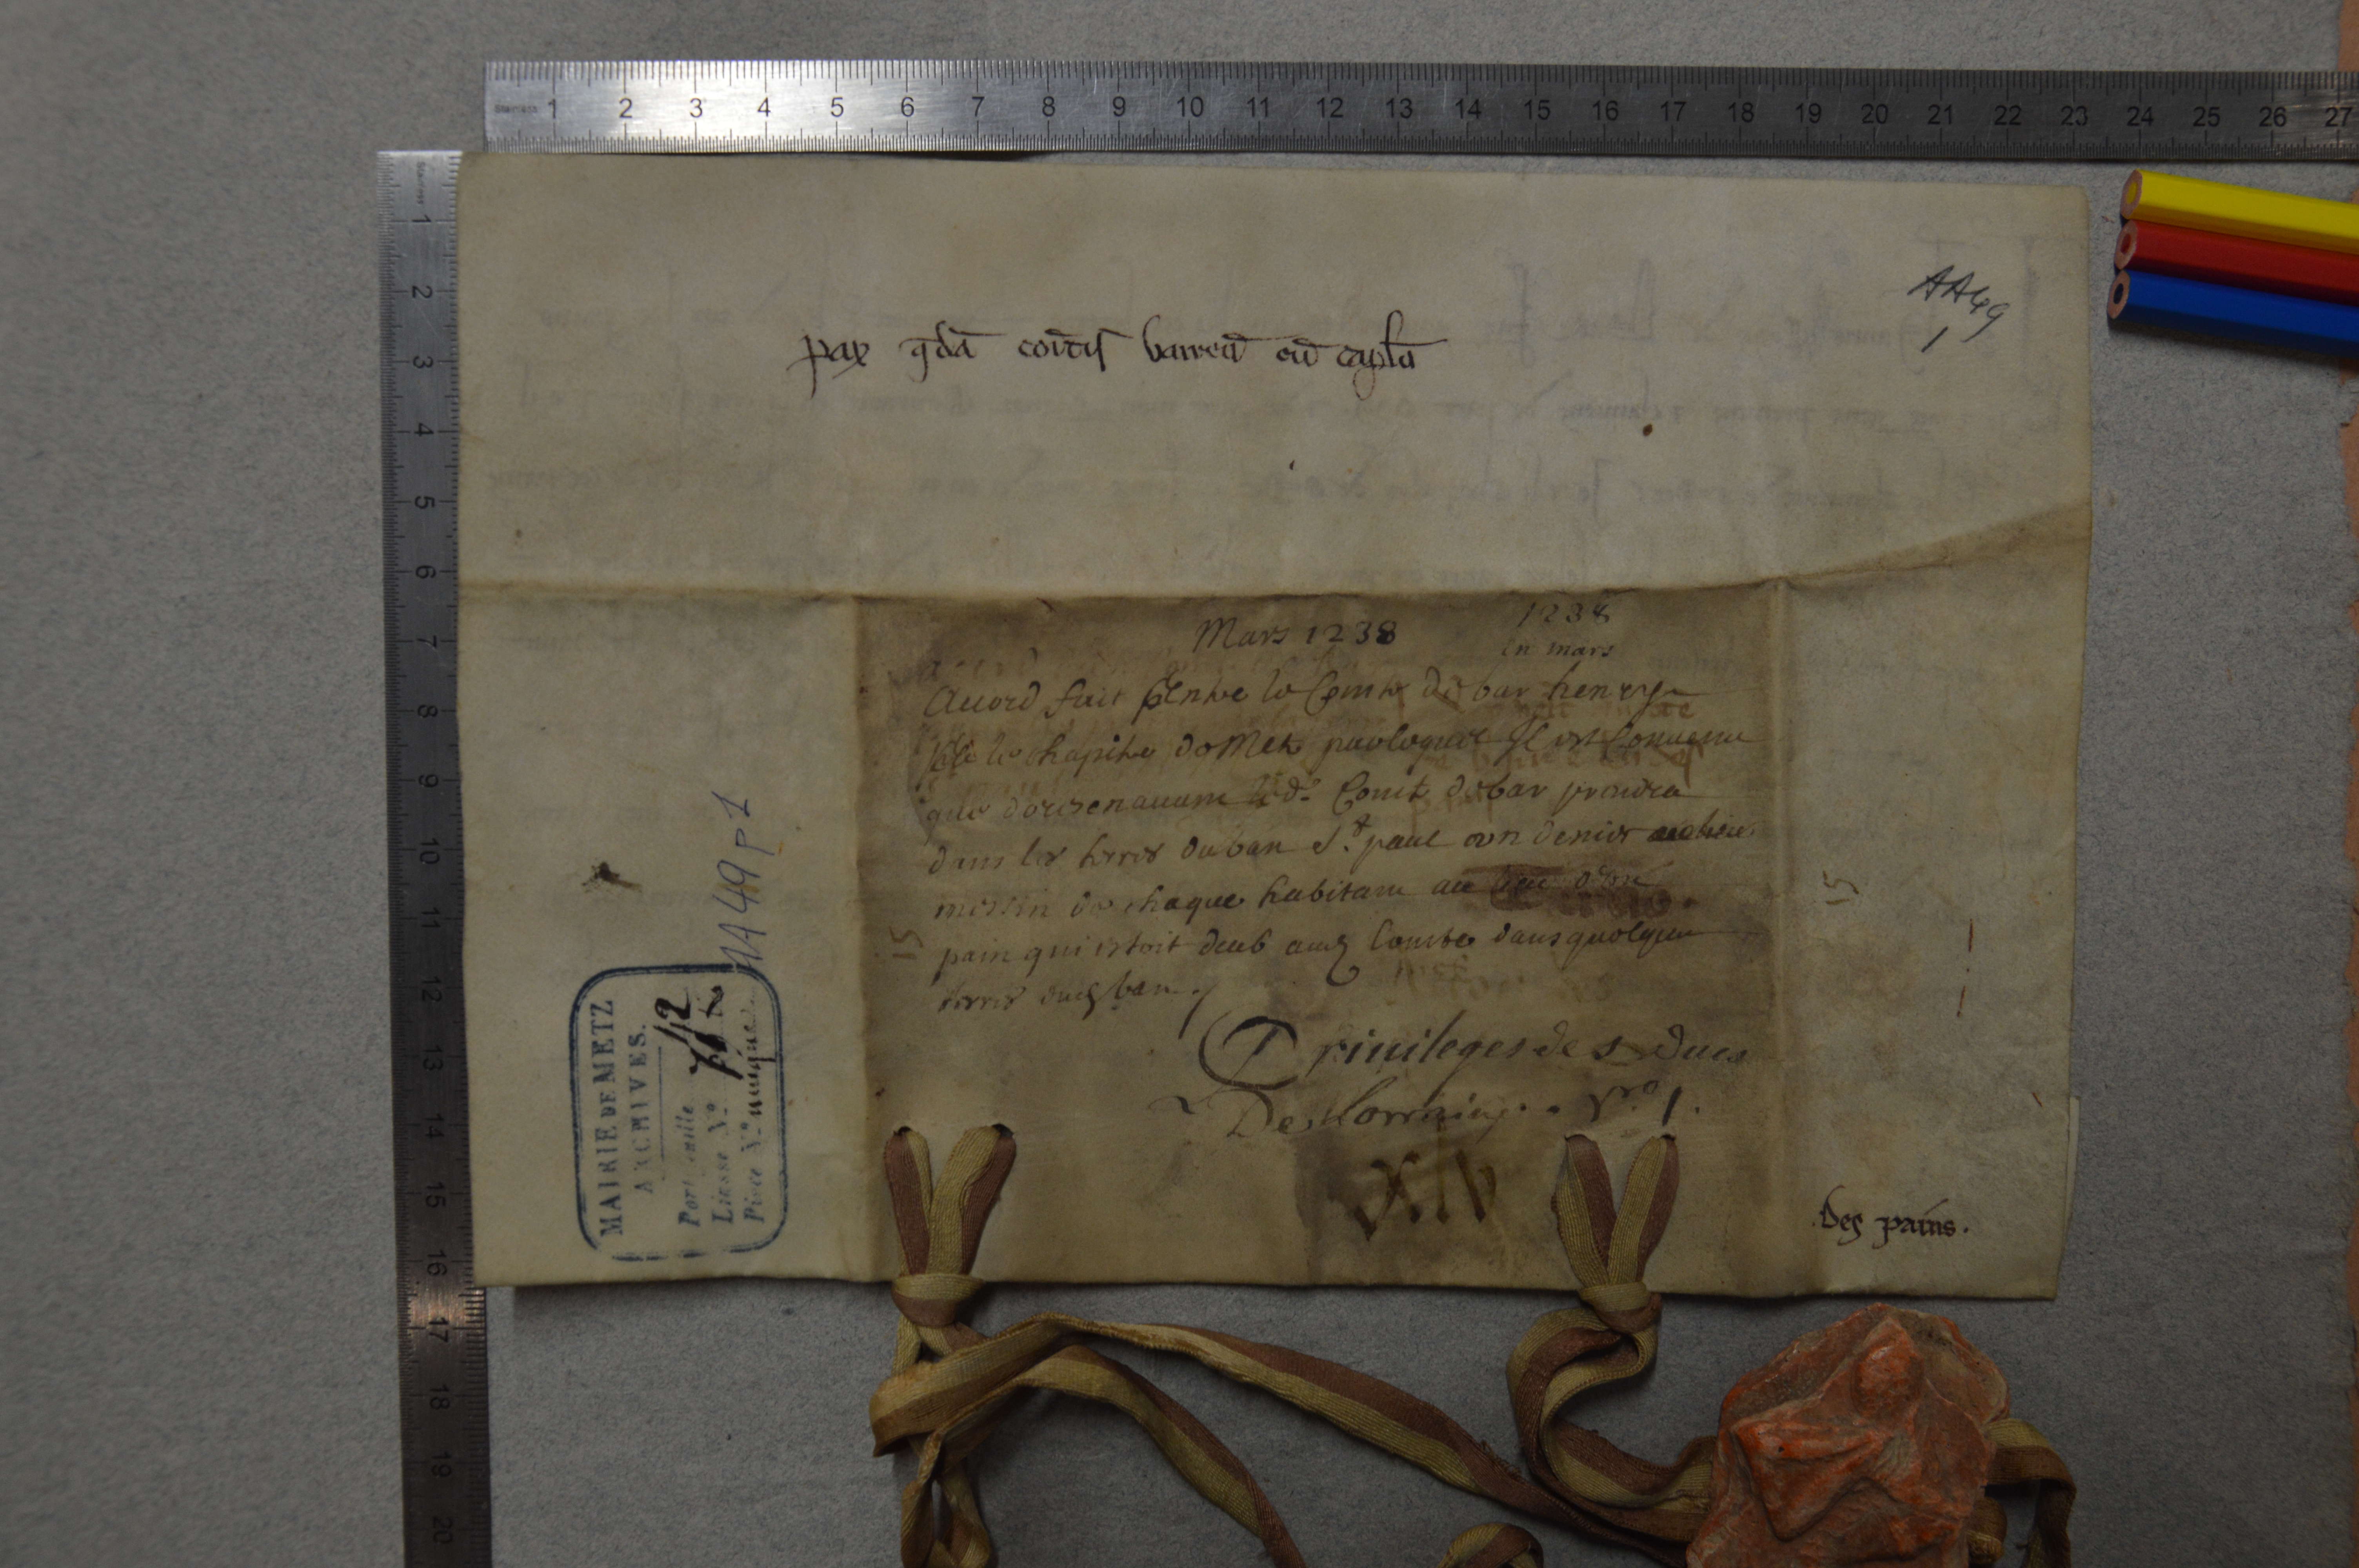 pax q̄dā coītis barreñ cū caplo
AA49
1
Mars 1238
1238
en mars
Accord fait Entre le Comte de bar henry
le chapitre de Metz par lequel Il est Conuenu
que doresenauant led. Comte de bar prendra
dans les terres du ban St. paul vn denier
messin de chaque habitant au lieu
pain qui estoit deub aud Comte dans quelque
terres dud ban.
Priuileges de s Ducs
De Lorraine. No 1.
XIV
Des pains.
15
15
AA49 p 1
MAIRIE DE METZ
ARCHIVES.
Portefeuille
Liasse No
Pièce No unique